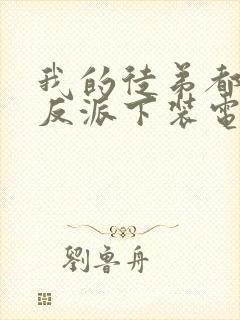 我的徒弟都
反派下装電
劉魯舟